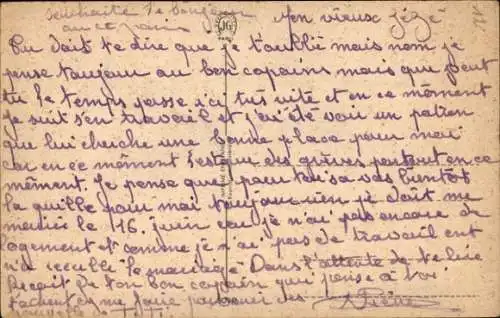 souhaite le bonjour
au copain
Mon vieux Zézé
Tu doit te dire que je t'oublie mais nom je
pense toujour au bon copains mais que veut
tu le temps passe ici trés vite et en ce mòment
je suit s'en travail et j'ai été voir un patron
que lui cherche une bonne place pour moi
car en ce mòment s'est que des gréves partout en ce
mòment. Je pense que pour toi sa vas bientôt
la quille pour moi toujour rien je doit me
marier le 16 juin car je n'ai pas encore de
logement et comme je n'ai pas de travail ont
n'a reculle le mariage Dans l'attente de te lire
Reçoit de ton bon copain qui pense à toi
tachent de me faire parvenir des
nouvelle de
Pierre